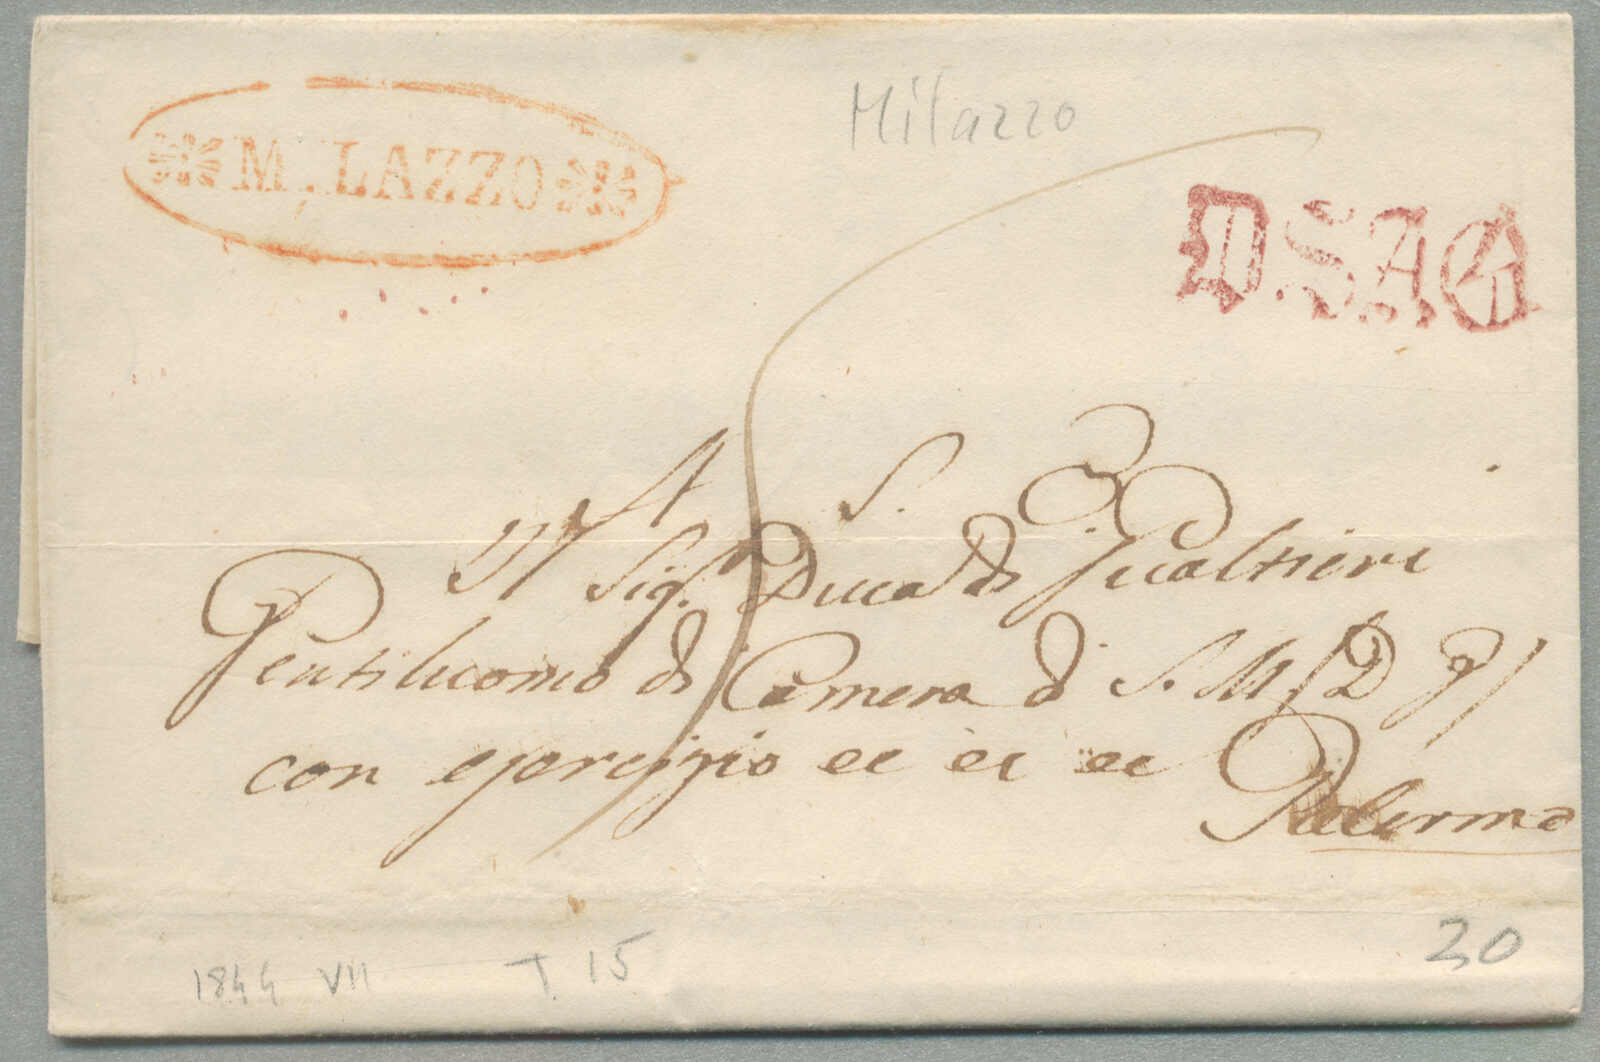 Milazzo
MILAZZO
D.SAG
A S. E.
Il Sigr. Duca di Gualtieri
Gentiluomo di Camera di S. M. (D. G.)
con esercizio ec ec ec
Palermo
1844 VII T. 15
20